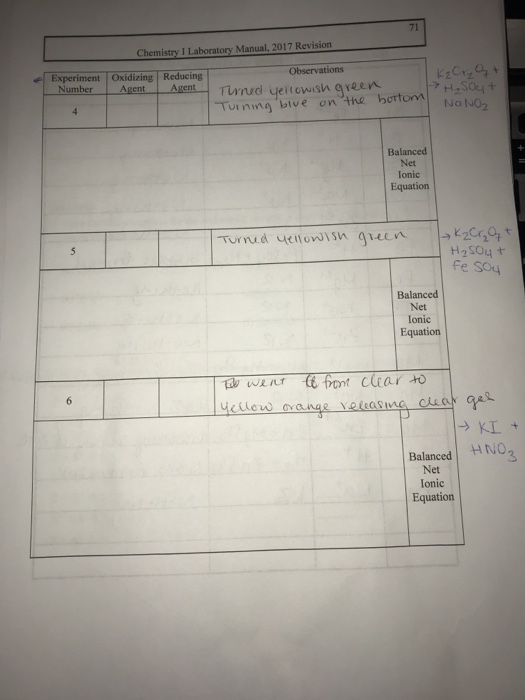 71
Chemistry 1 Laboratory Manual, 2017 Revision
Experiment Number
Oxidizing Agent
Reducing Agent
Observations
4
Turned yellowish green
Turning blue on the bottom
K2Cr2O7 +
→ H2SO4 +
NaNO2
Balanced
Net
Ionic
Equation
5
Turned yellowish green
→ K2Cr2O7 +
H2SO4 +
Fe SO4
Balanced
Net
Ionic
Equation
6
went from clear to
yellow orange releasing clear gas
→ KI +
HNO3
Balanced
Net
Ionic
Equation